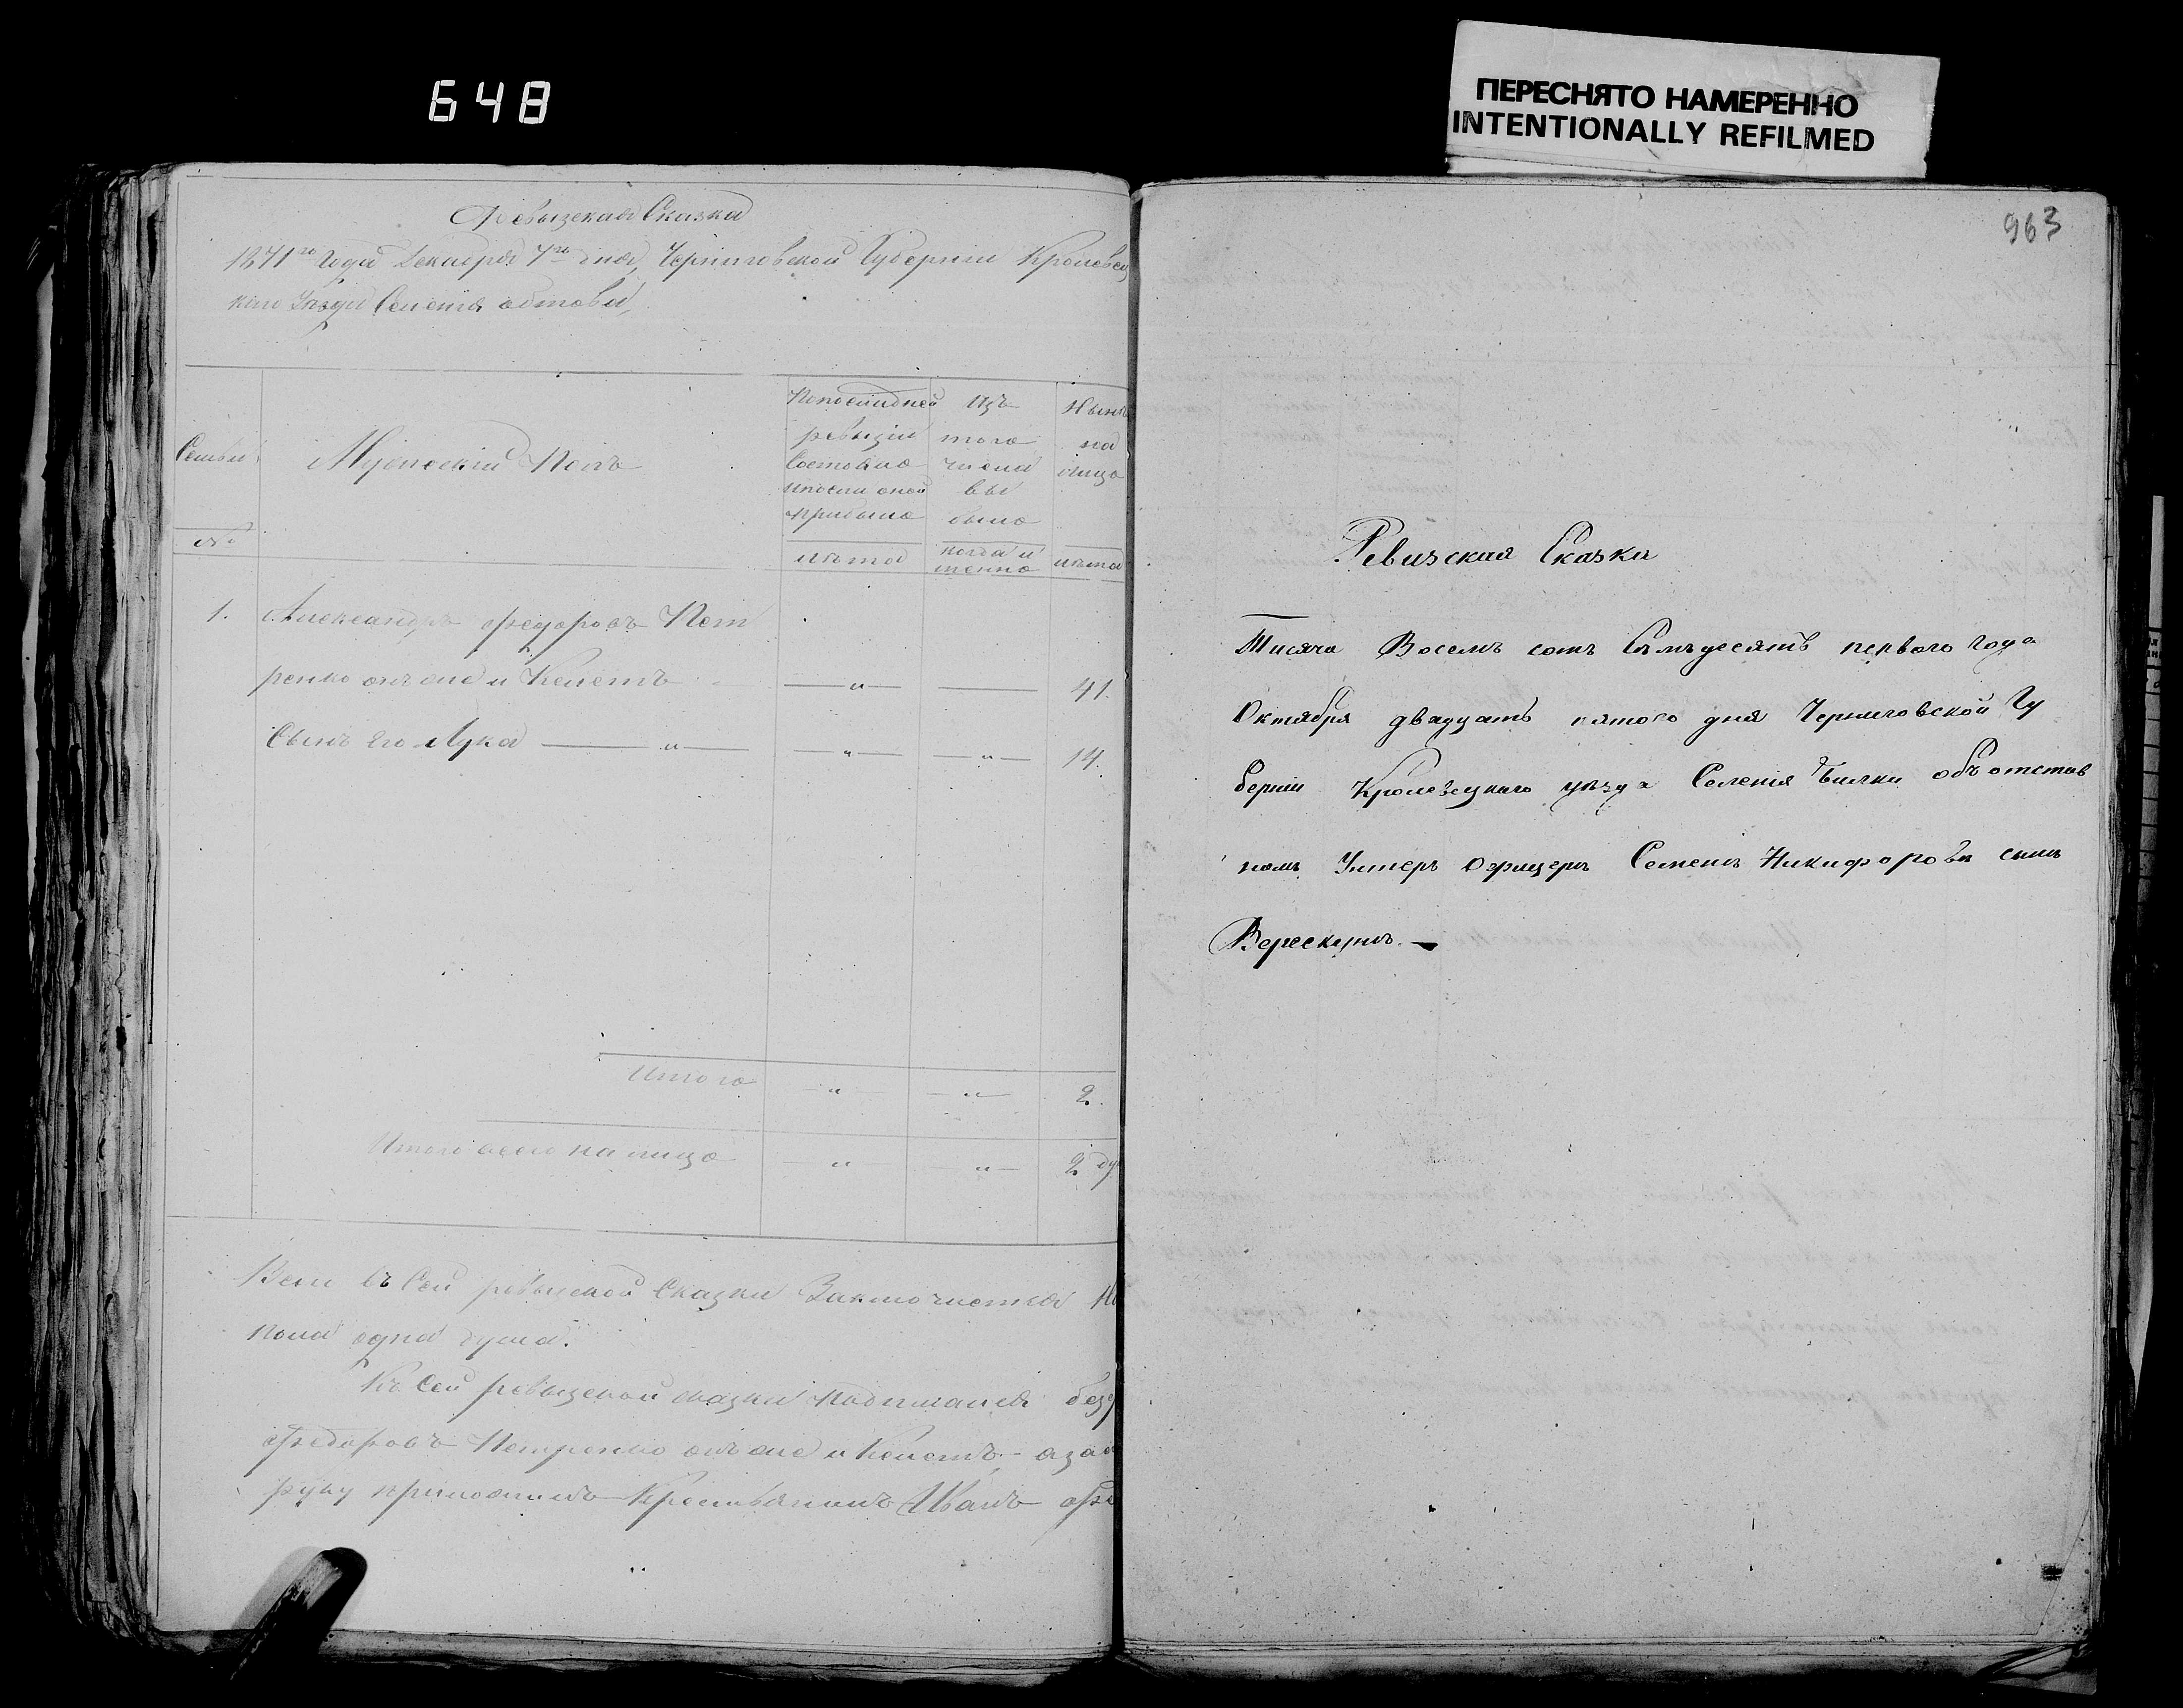 648
ПЕРЕСНЯТО НАМЕРЕННО
INTENTIONALLY REFILMED
Ревызская Сказка
1871го Года Декабря 7го дня, Черниговской Губернии Кролевец
каго Уезда Селенія обтова,
Семьи
Мужескій Полъ
Попоследней ревызіи Состояло ипосли оной прибыло
Изъ того числа вы было
Нынъ на лицо
№
лета
когда и менно
лета
1. Александръ Федоровъ Пет
ренко онъ же и Кепетъ — " — 41.
Сынъ Его Лука — " — — " — — " — 14.
Итого " — " — 2.
Итого всего на лицо — " — — " — 2 ду
Всего въ Сей ревызской Сказки Заключается
пола одна душа.
Къ Сей ревызской сказки Подписался
Федоровъ Петренко онъ же и Кепетъ
руку приложилъ Крестьянинъ Иванъ
963
Ревизская Сказка
Тисяча Восемъ сотъ Семъдесятъ первого года
Октября двадцатъ пятого дня Черниговской Гу
берніи Кролевецкаго уезда Селенія Билки объ отстав
номъ Унтеръ Офицеръ Семенъ Никифоровъ сынъ
Верескунъ. —